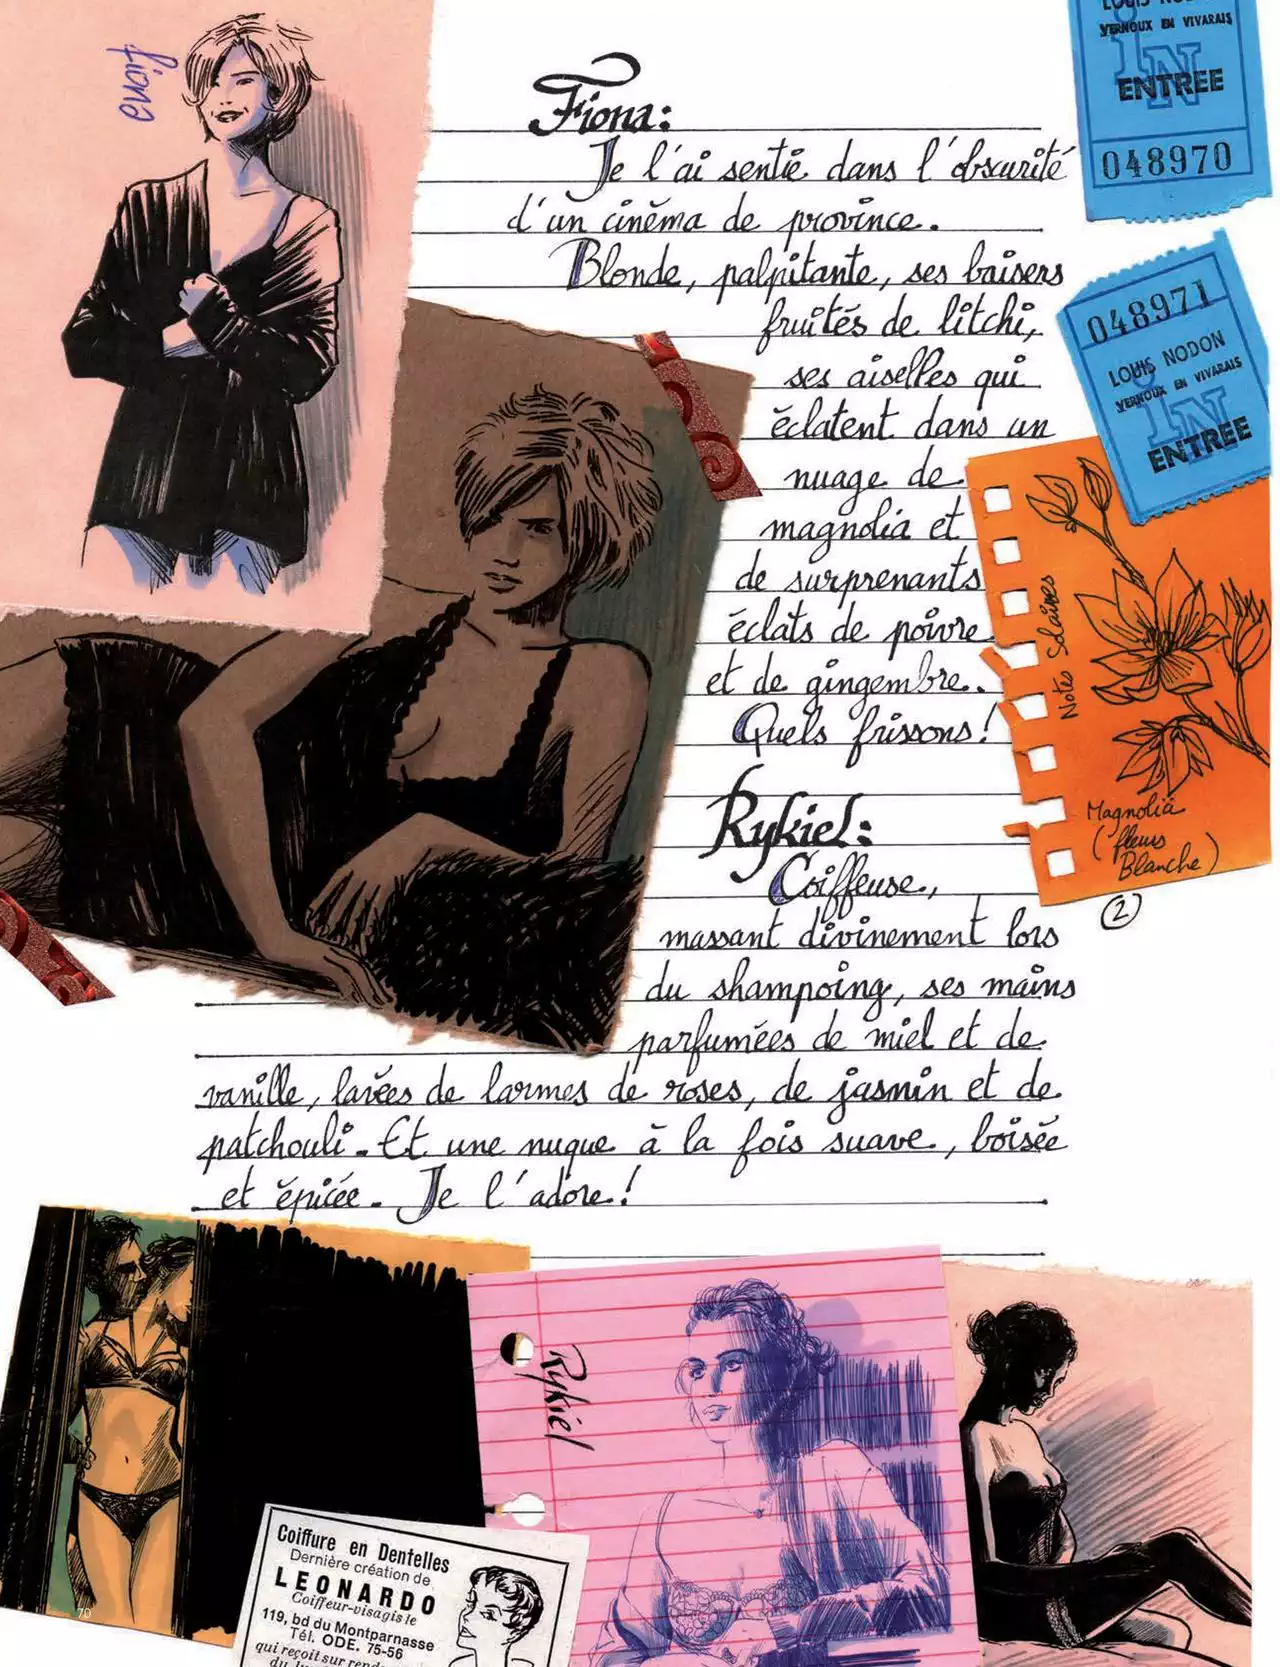 fiona
LOUIS NODON
VERNOUX EN VIVARAIS
iN
ENTREE
048970
Fiona:
Je l'ai sentie dans l'obscurité
d'un cinéma de province.
Blonde, palpitante, ses baisers
fruités de litchi,
ses aiselles qui
éclatent dans un
nuage de
magnolia et
de surprenants
éclats de poivre
et de gingembre.
Quels frissons!
048971
LOUIS NODON
VERNOUX EN VIVARAIS
iN
ENTREE
Notes Solaires
Magnolia
(fleurs
Blanche)
2
Rykiel:
Coiffeuse,
massant divinement lors
du shampoing, ses mains
parfumées de miel et de
vanille, lavées de larmes de roses, de jasmin et de
patchouli. Et une nuque à la fois suave, boisée
et épicée. Je l'adore!
Rykiel
Coiffure en Dentelles
Dernière création de
LEONARDO
Coiffeur-visagiste
119, bd du Montparnasse
Tél. ODE. 75-56
qui reçoit sur
du
70